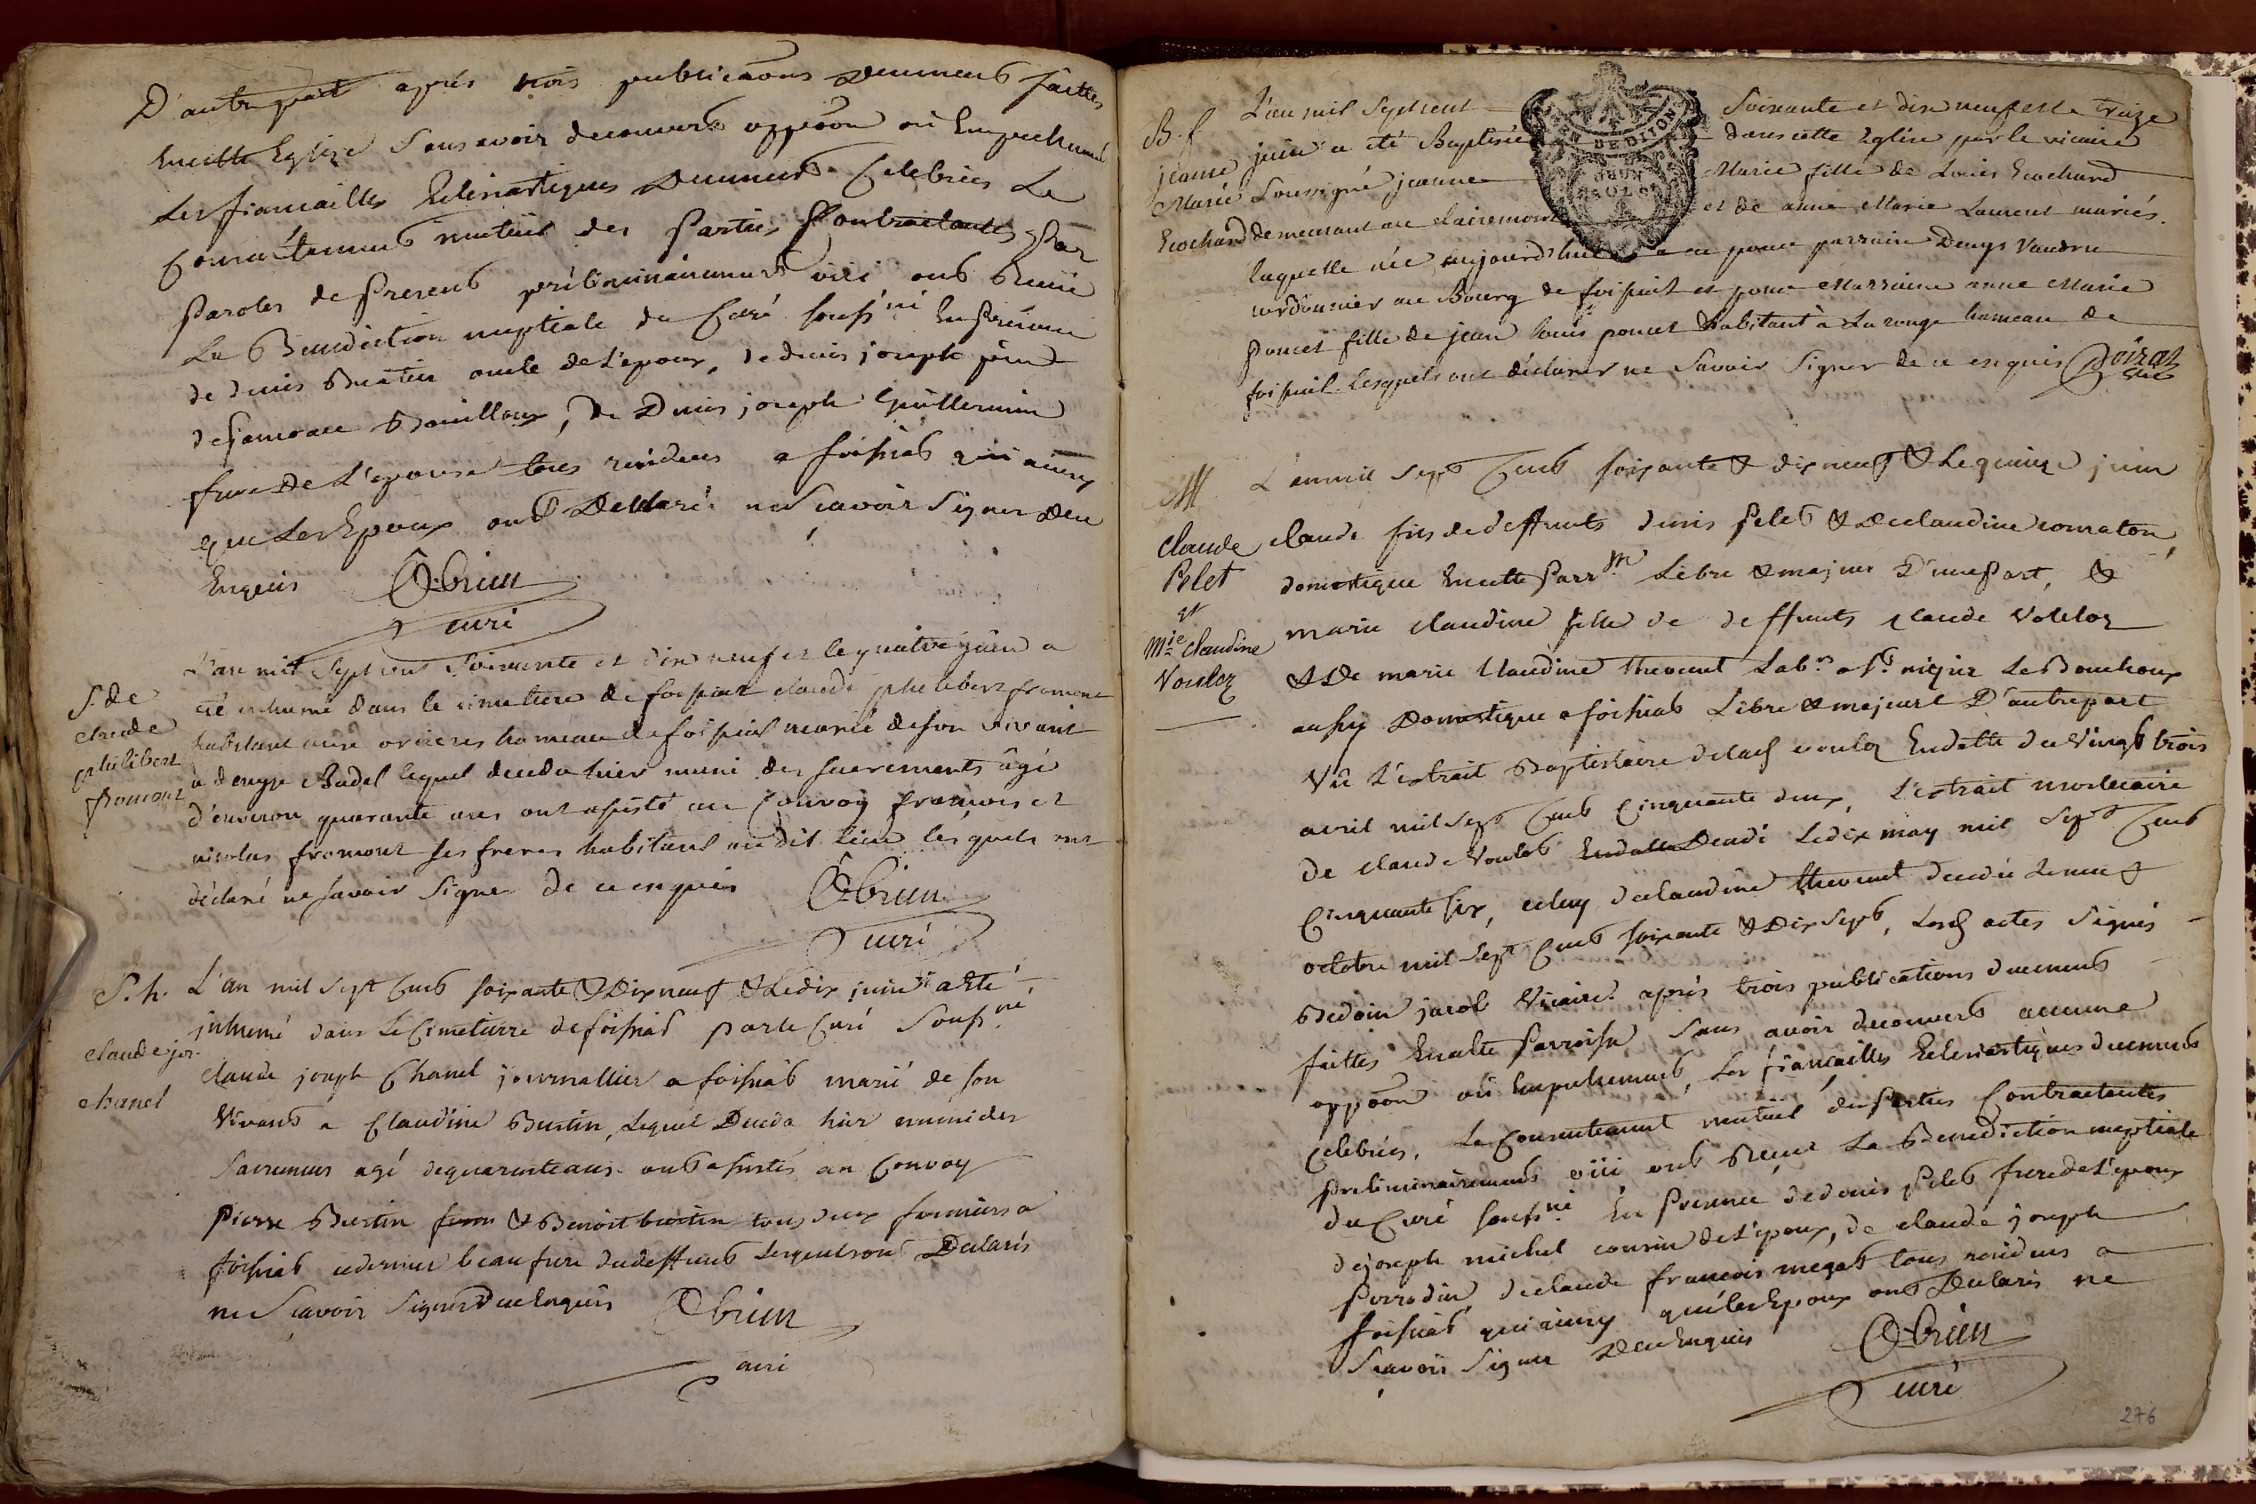 D'autre part après trois publicaôns deuement faittes
En cette Eglise sans avoir decouvert oppoôn où Empechemt
Les fiancailles Eclesiastiques Deuement Celebrées Le
Consentement mutuel des Parties Contractantes Par
Paroles de Present préliminairement oüi ont Recüe
La Benediction nuptiale du Curé soussné En presence
de denis oncle de L'epoux, de denis joseph
Bouilloux, de Denis joseph Guillermin
frere De L'epouse tous residens a foissiat qui ainsy
que Les Epoux ont Declaré ne Scavoir Signer De ce
Enquis Obrien
curé
S. de
claude
philibert
fromont
L'an mil sept cent soixante et dix neuf et le quatre juin a
été inhumé dans le cimetiere de foissiat claude philibert fromont
habitant aux orcieres hameau de foissiat marié de son vivant
a denyse Budel lequel deceda hier muni des sacrements âgé
d'environ quarante ans ont assisté au Convoy françois et
nicolas fromont ses freres habitant au dit lieu lesquels ont
déclaré ne savoir signer de ce enquis Obrien
curé
S. h.
claude jos.
chanel
L'an mil sept Cent soixante & Dix neuf & Le dix juin a Eté
inhumé dans Le Cimetierre de foissiat par le Curé Soussné
claude joseph Chanel journallier a foissiat marié de son
Vivant a Claudine Burtin, Lequel Deceda hier muni des
Sacremens agé de quarente ans. ont assistés au Convoy
Pierre Burtin & Benoit burtin tous deux fermiers a
foissiat ce dernier beau frere du deffunt Lesquels ont Declarés
ne Scavoir Signer De ce Enquis Obrien
curé
B. f.
jeanne
Marie
Ecochard
GEN DE DIJON
L'an mil Sept cent soixante et dix neuf et le treize
juin a été Baptisée dans cette Eglise par le vicaire
Soussigné jeanne Marie fille de Louis Ecochard
demeurant au clairemont et de anne Marie Laurent mariés.
laquelle née aujourd'hui a eu pour parrain Denys Vaudru
cordonnier au Bourg de foissiat et pour Marraine anne Marie
poncet fille de jean louis poncet habitant à La rouge hameau de
foissiat lesquels ont déclarer ne Savoir Signer de ce enquis Poizat
vic
M
Claude
Pelet
et
Mie Claudine
Vouloz
L'an mil Sept Cent soixante & dix neuf & Le quinze juin
claude fils de deffunts denis Pelet & De claudine cornaton,
domestique En cette Parrse Libre & majeur D'une Part, &
marie claudine fille de deffunts claude Vouloz
& De marie Claudine thevenet Labrs a St nizier Le Bouchoux
aussy Domestique a foissiat Libre & majeure D'autre part
Vû L'extrait Baptistaire de lad vouloz En datte du Vingt trois
avril mil Sept Cent Cinquante deux, L'extrait mortuaire
de claude Voulot En datte Decedé Le dix may mil Sept Cent
Cinquante six, celuy de claudine thevenet decedée Le neuf
octobre mil Sept Cent soixante & Dix Sept, Lesd actes Signés
Bedoin jacob Vicaire. après trois publications deuement
faittes En cette Parroisse Sans avoir decouvert aucune
oppoôn où Empechement, Les fiancailles Eclesiastiques deuement
Celebrées, Le Consentement mutuel des Parties Contractantes
Preliminairement oüi, ont Recüe La Benediction nuptiale
du Curé soussné En Presence de denis Pelet frere de L'epoux
de joseph michel cousin de L'epoux, de claude joseph
Perrodin, de claude francois megat tous residens a
foissiat qui ainsy que les Epoux ont Declarés ne
Scavoir Signer De ce Enquis Obrien
curé
276